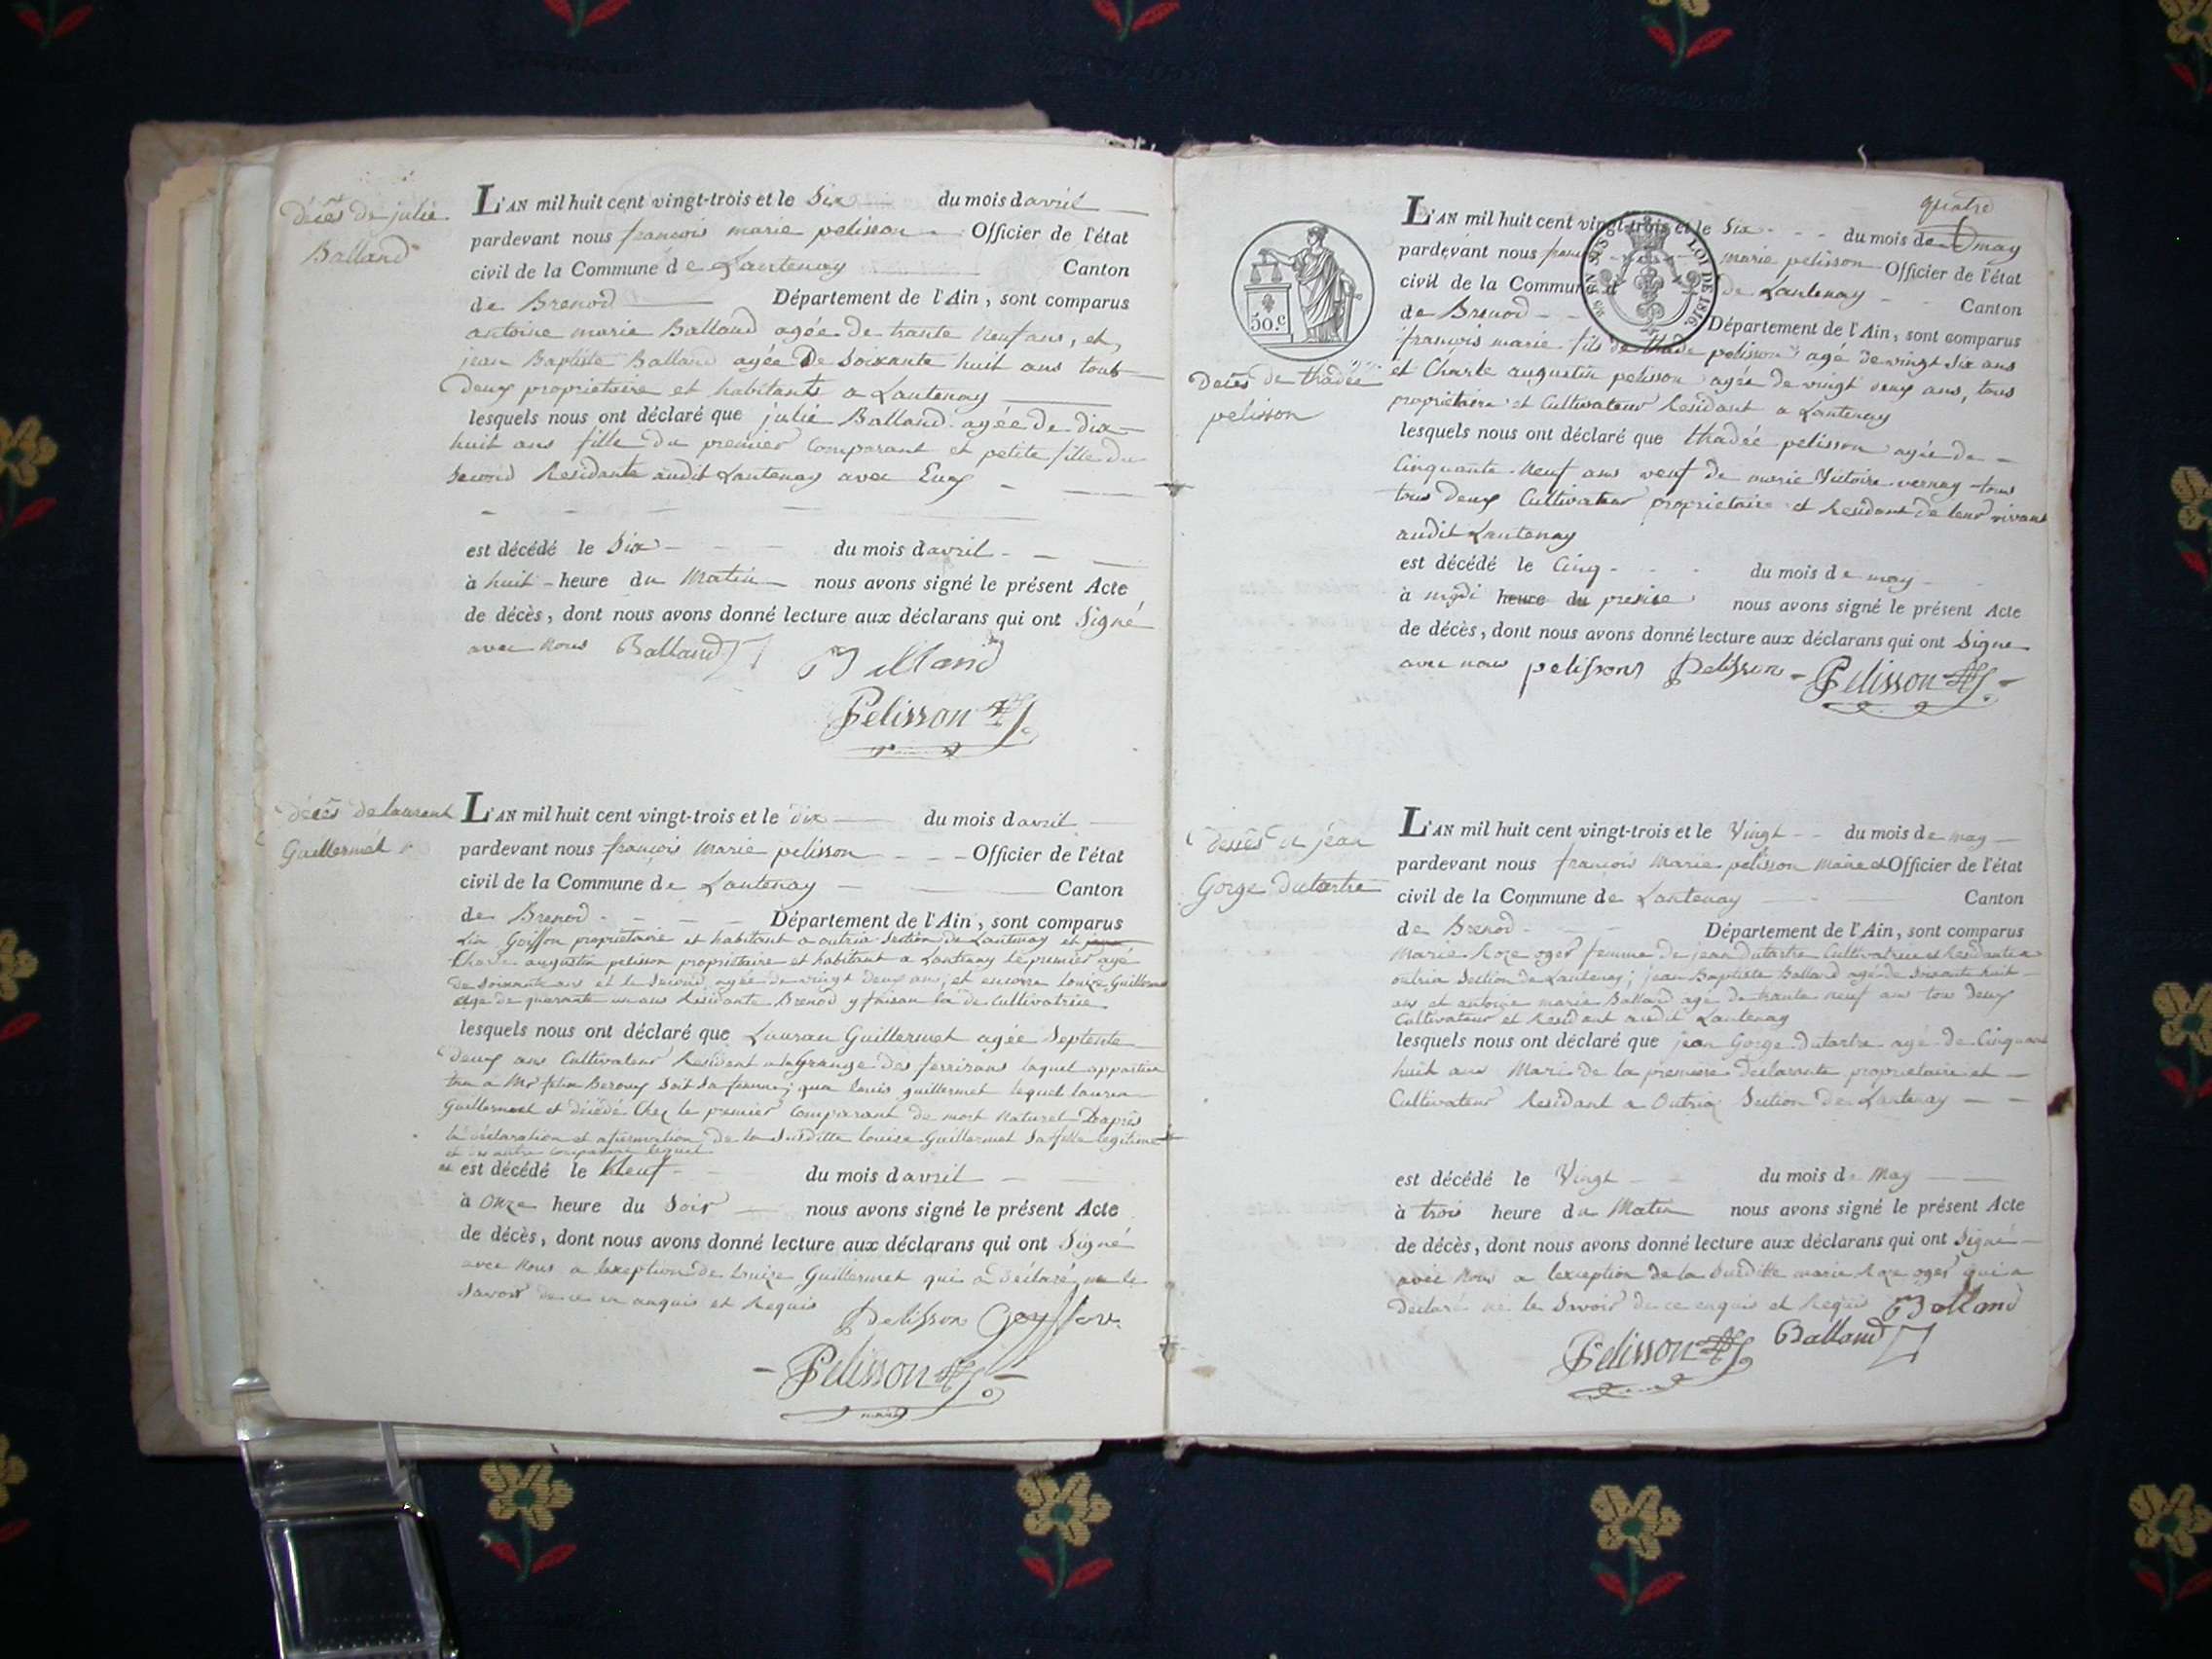 décès de julie
Balland
L'AN mil huit cent vingt-trois et le Six du mois d avril
pardevant nous francois marie pelisson Officier de l'état
civil de la Commune de Lantenay Canton
de Brenod Département de l'Ain, sont comparus
antoine marie Balland agée de trante neuf ans, et
jean Baptiste Balland agée De Soixante huit ans touts
Deux propriétaire et habitants a Lantenay
lesquels nous ont déclaré que julie Balland agée De dix
huit ans fille Du premier Comparant et petite fille Du
Second Residante audit Lantenay avec Eux
est décédé le Six du mois d avril
à huit heure du Matin nous avons signé le présent Acte
de décès, dont nous avons donné lecture aux déclarans qui ont Signé
avec nous Balland Balland
Pelisson
décès de laurent
Guillermet
L'AN mil huit cent vingt-trois et le dix du mois d avril
pardevant nous françois Marie pelisson Officier de l'état
civil de la Commune de Lantenay Canton
de Brenod Département de l'Ain, sont comparus
Goiffon propriétaire et habitant a outria Section de Lantenay et
Charle augustin pelisson propriétaire et habitant a Lantenay le premier agé
de Soixante ans et le Second agée de vingt deux ans, et encorre Louize Guillermet
age de quarante un ans Residante Brenod y faisan de Cultivatrice
lesquels nous ont déclaré que Lauran Guillermet agée Septente
deux ans Cultivateur Resident a la Grange des ferrisans laquel appartien
tan a Mr felix Soit Sa femme; louis guillermet lequel lauren
Guillermet et décédé Chez le premier Comparant de mort naturel D'après
la déclaration et afirmation de la Susditte louise Guillermet Sa fille legitime
et autre comparan lequel
est décédé le Neuf du mois d avril
à Onze heure du Soir nous avons signé le présent Acte
de décès, dont nous avons donné lecture aux déclarans qui ont Signé
avec Nous a lexeption de Louize Guillermet qui a déclaré ne le
Savoir de ce enquis et Requis Pelisson Goyffon
Pelisson
maire
quatre
50.c
LOI DE 1816.
Decès de thadée
pelisson
L'AN mil huit cent vingt-trois et le Six du mois de may
pardevant nous marie pelisson Officier de l'état
civil de la Commune de Lantenay Canton
de Brenod Département de l'Ain, sont comparus
françois marie fils de thade pelisson agé de vingt Six ans
et Charle augustin pelisson agée de vingt deux ans, tous
propriétaire et Cultivateur Residant a Lantenay
lesquels nous ont déclaré que thadée pelisson agée de
Cinquante Neuf ans veuf de marie Victoire vernay tous
tous deux Cultivateur propriétaire et Residant de leur vivant
audit Lantenay
est décédé le Cinq du mois de may
à mydi heure du presise nous avons signé le présent Acte
de décès, dont nous avons donné lecture aux déclarans qui ont Signe
avec nous pelisson Pelisson Pelisson
Gorge dutartre
L'AN mil huit cent vingt-trois et le Vingt du mois de may
pardevant nous françois Marie pelisson Maire et Officier de l'état
civil de la Commune de Lantenay Canton
de Brenod Département de l'Ain, sont comparus
Marie Roze oger femme de jean dutartre Cultivatrice et Residante a
outria Section de Lantenay; jean Baptiste Balland agé de Soixante huit
ans et antoine marie Balland age de trante neuf ans tous deux
Cultivateur et Residant audit Lantenay
lesquels nous ont déclaré que jean Gorge dutartre agé de Cinquante
huit ans Mari de la premiere declarante proprietaire et
Cultivateur Residant a Outria Section de Lantenay
est décédé le Vingt du mois de May
à trois heure du Matin nous avons signé le présent Acte
de décès, dont nous avons donné lecture aux déclarans qui ont Signé
avec nous a lexception de la Susditte marie Roze oger qui a
declaré ne le Savoir de ce enquis et Requis Balland
Pelisson Balland